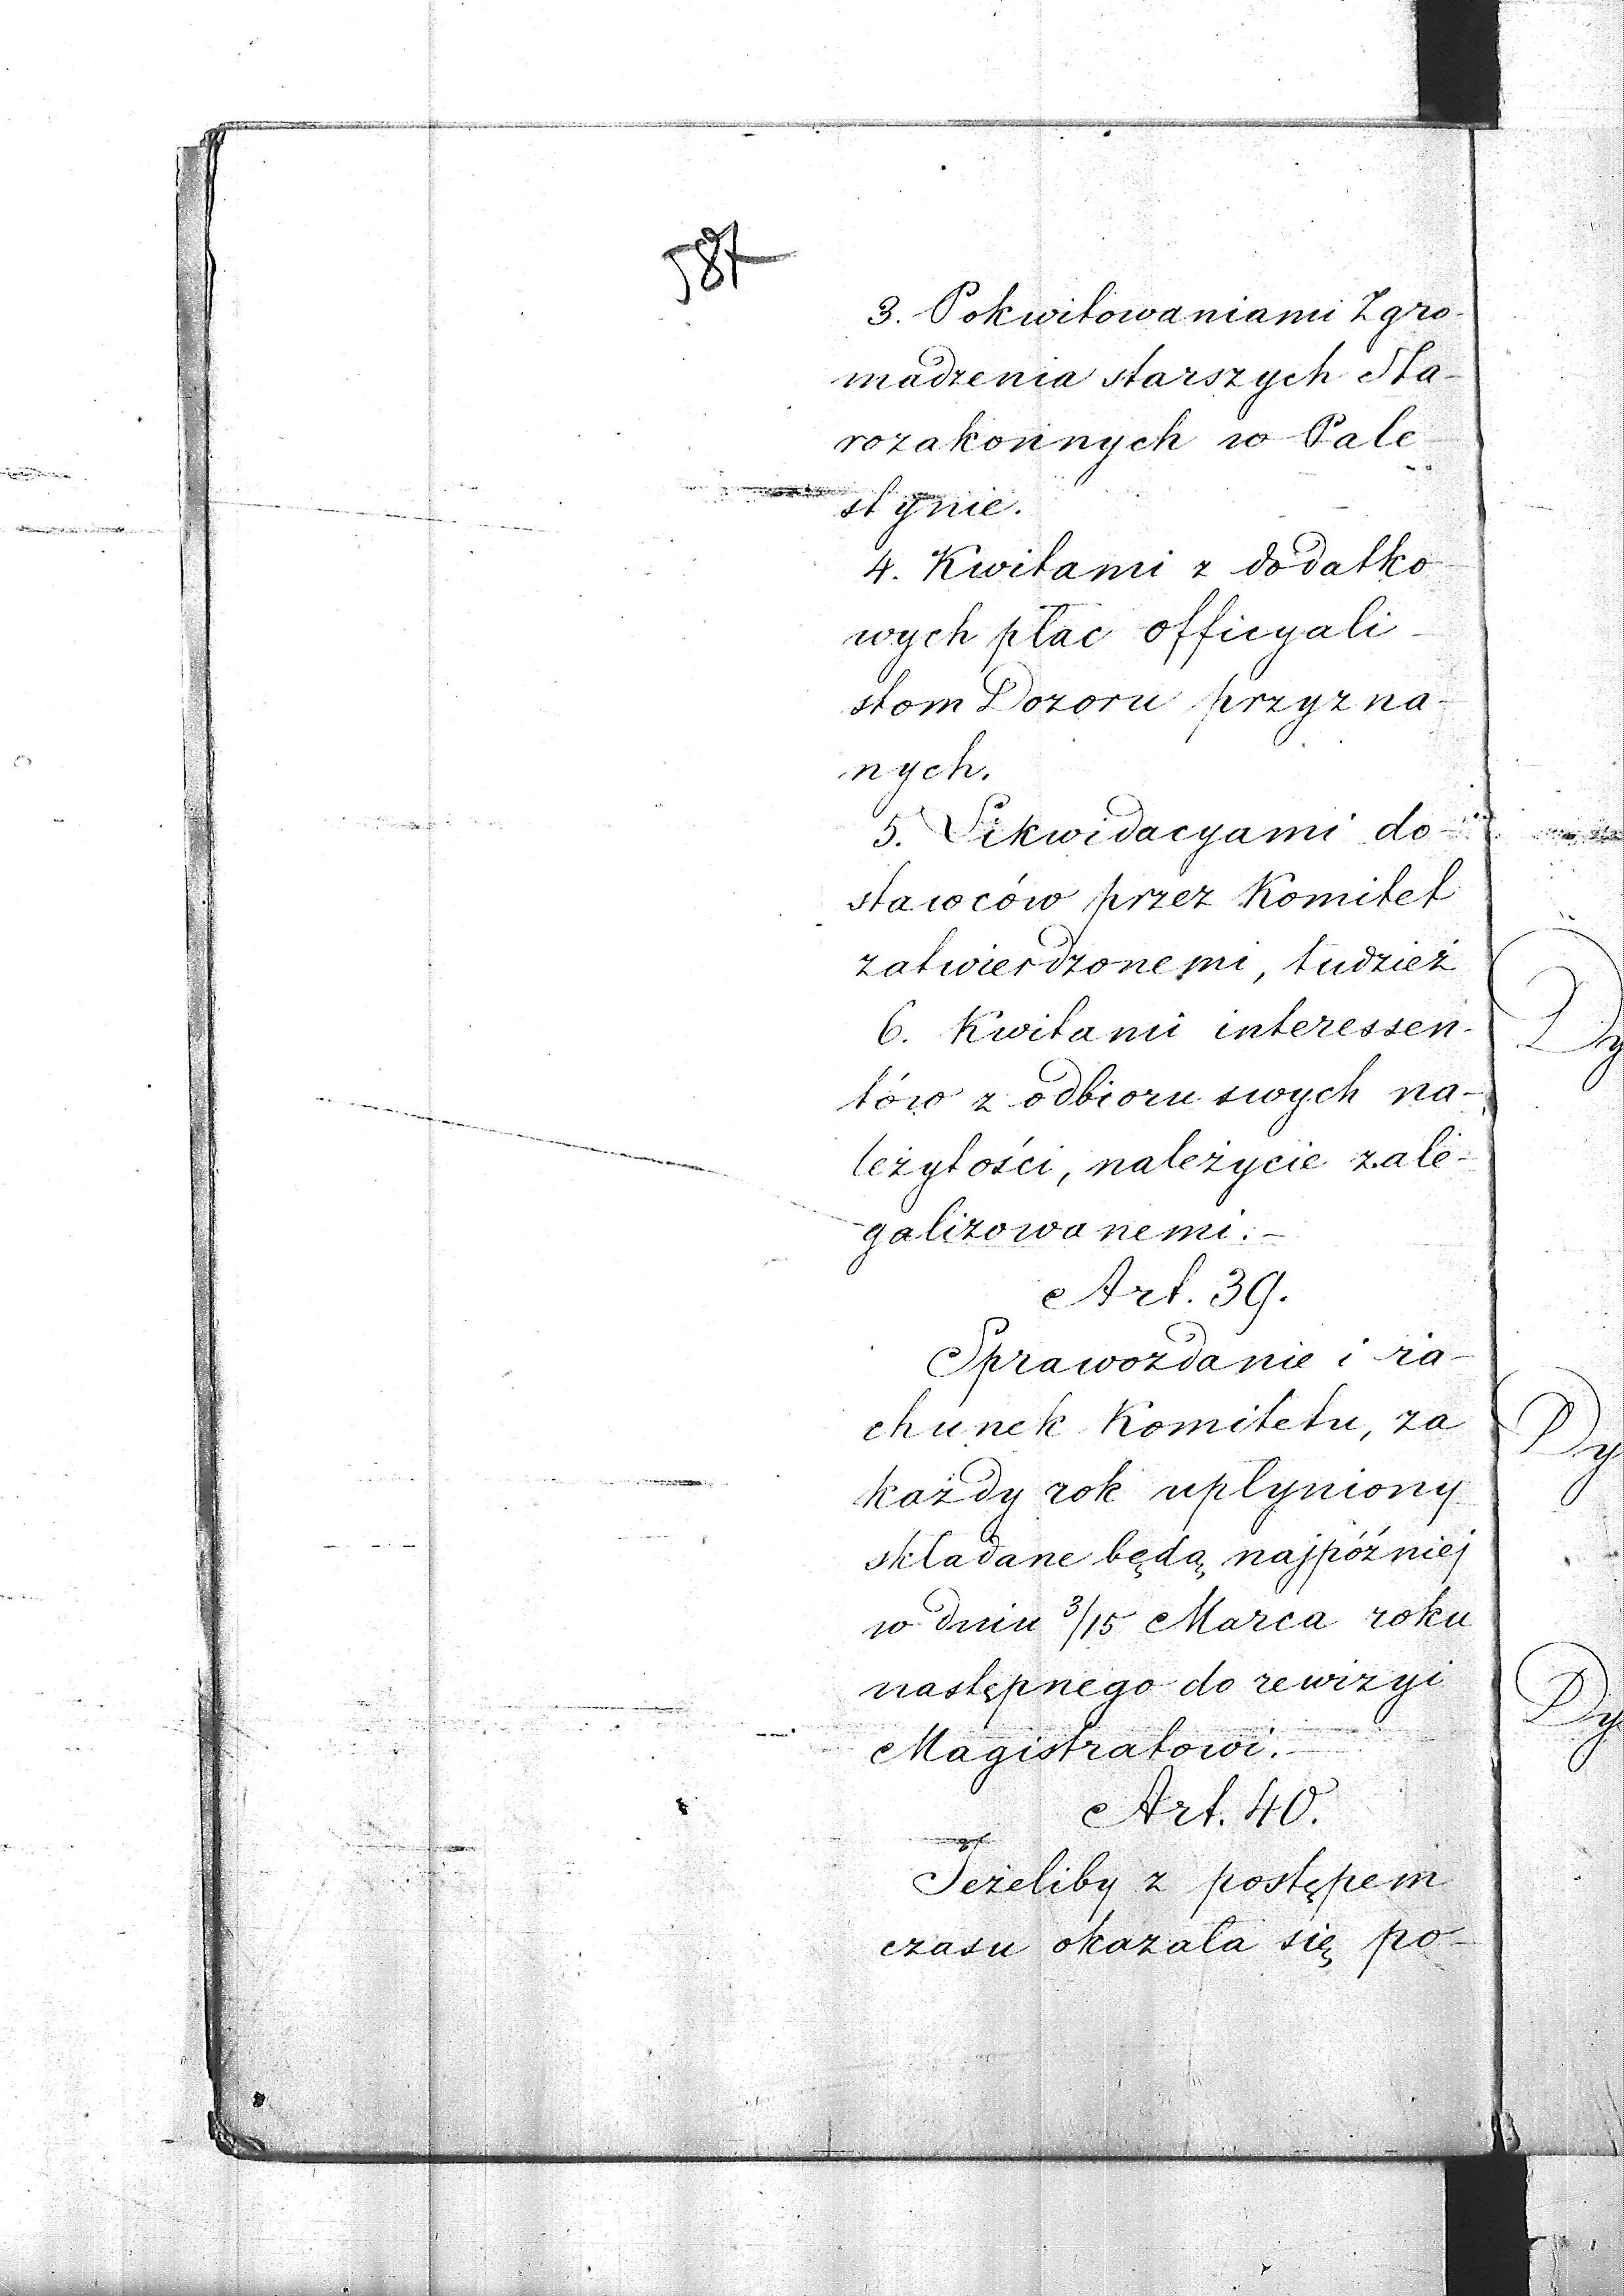 587
3. Pokwitowaniami Zgro-
madzenia starszych Sta-
rozakonnych w Pale
stynie.
4. Kwitami z dodatko
wych płac officyali-
stom Dozoru przyzna-
nych.
5. Likwidacyami do-
stawców przez Komitet
zatwierdzonemi, tudzież
6. Kwitami interessen-
tów z odbioru swych na-
leżytości, należycie zale-
galizowanemi.-
Art. 39.
Sprawozdanie i ra-
chunek Komitetu, za
każdy rok upłyniony
składane będą najpóźniej
w dniu 3/15 Marca roku
następnego do rewizyi
Magistratowi.-
Art. 40.
Jeżeliby z postępem
czasu okazała się po-
Dy
Dy
Dy